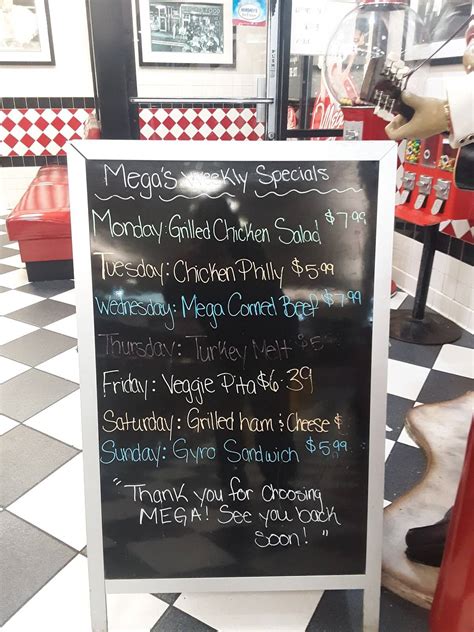 Mega's weekly Specials
Monday: Grilled Chicken Salad $7.99
Tuesday: Chicken Philly $5.99
Wednesday: Mega Corned Beef $7.99
Thursday: Turkey Melt $5
Friday: Veggie Pita $6.39
Saturday: Grilled ham & Cheese $
Sunday: Gyro Sandwich $5.99
"Thank you for choosing
MEGA! See you back
soon!"